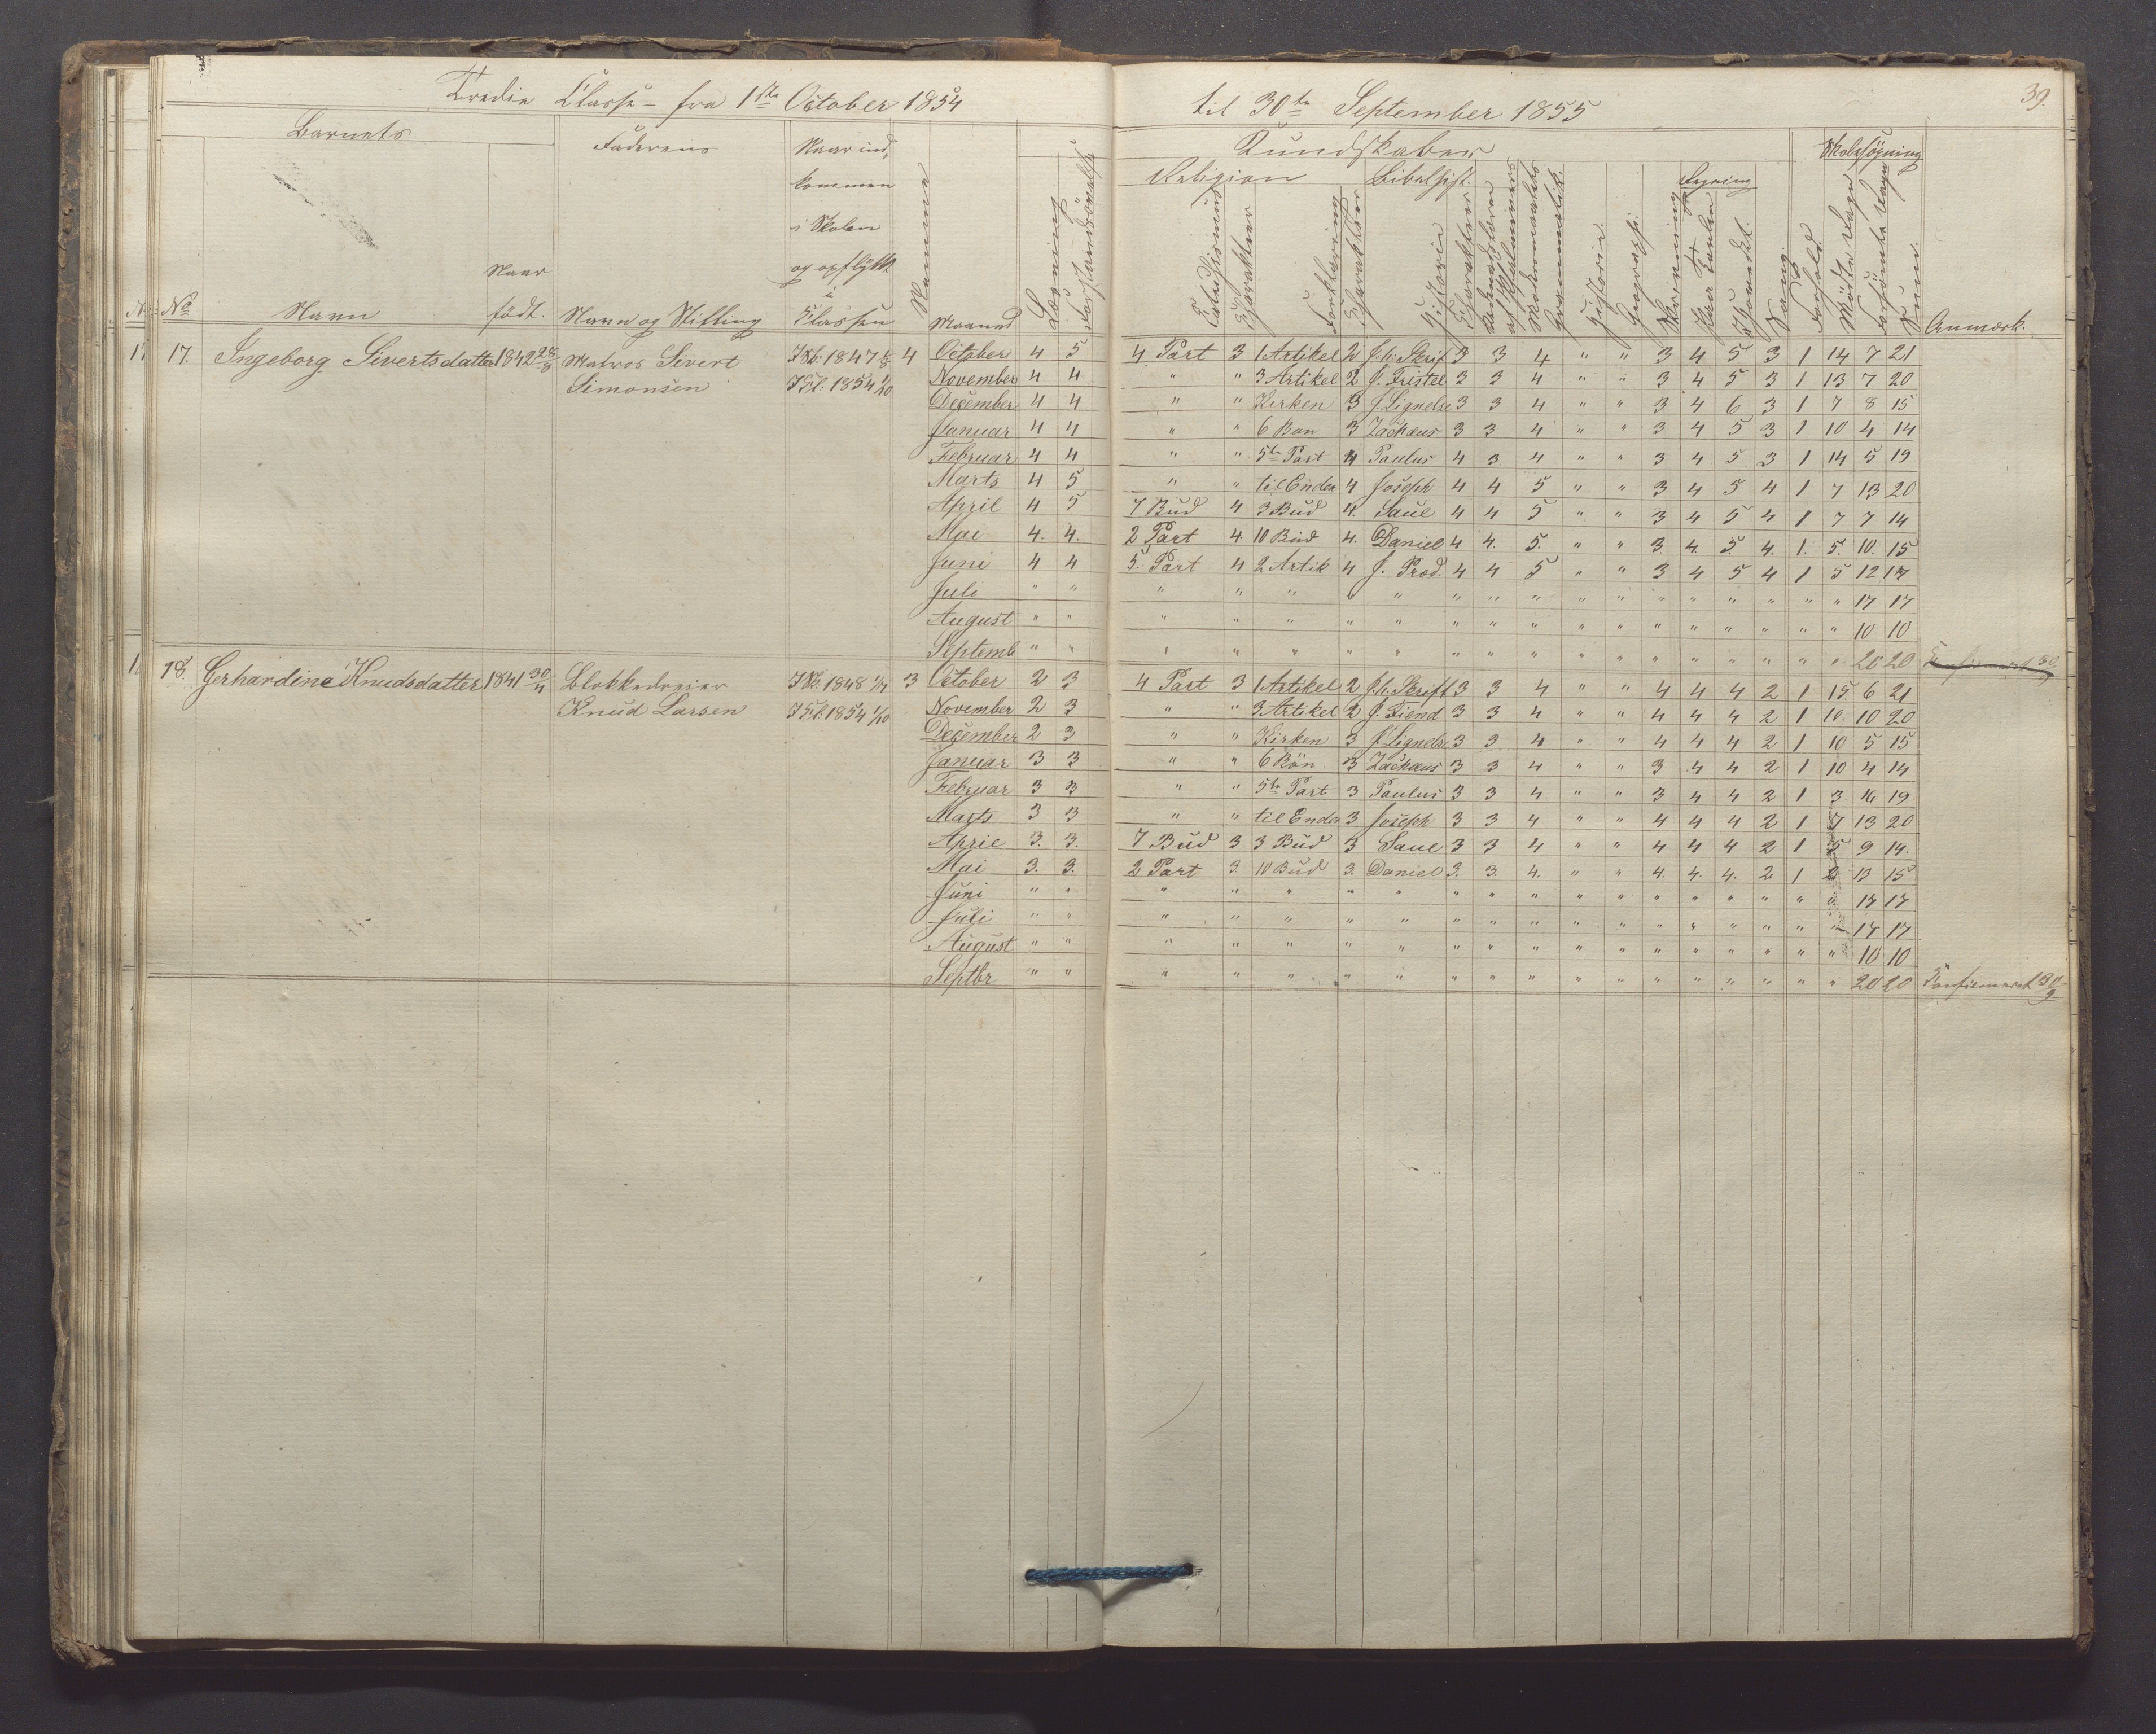 Tredie Classe - fra 1ste October 1854 til 30te September 1855 39.
Barnets Faderens Naar ind, Kundskaber Skolesøgning
kommen Religion Bibelhist. Regning
i Skolen
Naar og opflyttet
i
No Navn født. Navn og Stilling Classen Nemme Maaned Læsning Forstandsøvelse Catechismus Charakteer Forklaring Charakteer Historie Charakteer Modersmaalets Grammatik. Historie Geographi. Skrivning Paa Tavlen I Hovedet. Sang. Forhold Mødte Dage Forsømte Dage Sum. Anmærk.
17. Ingeborg Sivertsdatter 1842 28/8 Matros Sivert I Sk. 1847 4 October 4 5 4 Part 3 1 Artikel 2 J. h. Skrif 3 3 4 " " 3 4 5 3 1 14 7 21
Simonsen I Cl. 1854 1/10 November 4 4 " " 3 Artikel 2 J. Fristel 3 3 4 " " 3 4 5 3 1 13 7 20
December 4 4 " " Kirken 3 J. Lignelse 3 3 4 " " 3 4 6 3 1 7 8 15
Januar 4 4 " " 6 Bøn 3 Zachæus 3 3 4 " " 3 4 5 3 1 10 4 14
Februar 4 4 " " 5te Part 4 Paulus 4 3 4 " " 3 4 5 3 1 14 5 19
Marts 4 5 " " til Enden 4 Joseph 4 4 5 " " 3 4 5 4 1 7 13 20
April 4 5 7 Bud 4 3 Bud 4. Saul 4 4 5 " " 3 4 5 4 1 7 7 14
Mai 4. 4. 2 Part 4. 10 Bud 4. Daniel 4 4. 5. " " 3. 4. 5. 4. 1. 5. 10. 15
Juni 4 4 5. Part 4 2 Artik 4 J. Præd. 4 4 5 " " 3 4 5 4 1 5 12 17
Juli " " " " " " " " " " " " " " " " " " 17 17
August " " " " " " " " " " " " " " " " " " 10 10
Septemb " " " " " " " " " " " " " " " " " " 20 20 Confirmeret 30
18. Gerhardine Knudsdatter 1841 30/4 Blokkedreier I Sk. 1848 1/4 3 October 2 3 4 Part 3 1 Artikel 2 J. h. Skrift 3 3 4 " " 4 4 4 2 1 15 6 21
Knud Larsen I Cl. 1854 1/10 November 2 3 " " 3 Artikel 2 J. Fiend 3 3 4 " " 4 4 4 2 1 10 10 20
December 2 3 " " Kirken 3 J Lignelse 3 3 4 " " 4 4 4 2 1 10 5 15
Januar 3 3 " " 6 Bön 3 Zachæus 3 3 4 " " 3 4 4 2 1 10 4 14
Februar 3 3 " " 5te Part 3 Paulus 3 3 4 " " 3 4 4 2 1 3 16 19
Marts 3 3 " " til Enden 3 Joseph 3 3 4 " " 4 4 4 2 1 7 13 20
April 3. 3. 7 Bud 3 3 Bud 3 Saul 3 3 4 " " 4 4 4 2 1 5 9 14.
Mai 3. 3. 2 Part 3. 10 Bud 3. Daniel 3. 3. 4. " " 4. 4. 4. 2 1 2 13 15
Juni " " " " " " " " " " " " " " " " " " 17 17
Juli " " " " " " " " " " " " " " " " " " 17 17
August " " " " " " " " " " " " " " " " " " 10 10
Septbr " " " " " " " " " " " " " " " " " " 20 20 Confirmeret 30/9